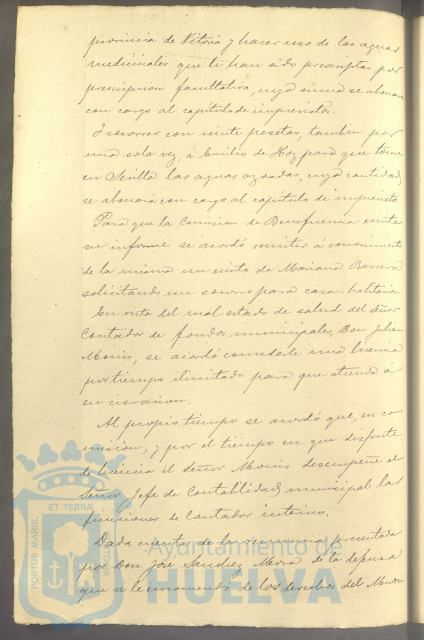 provincia de Vitoria y hacer uso de las aguas
medicinales que le han sido prescriptas por
prescripcion facultativa, cuya suma se abonará
con cargo al capitulo de imprevistos.
Y socorrer con veinte pesetas, tambien por
una sola vez, á Emilio de Hoz para que tome
en Sevilla las aguas azoadas, cuya cantidad
se abonará con cargo al capitulo de imprevisto
Para que la Comision de Beneficencia emita
su informe se acordó remitir á conocimiento
de la misma un escrito de Mariana Barrera
solicitando un socorro para casa habitacion
En vista del mal estado de salud del Señor
Contador de fondos municipales, Don Julian
se acordó concederle una licencia
por tiempo ilimitado para que atienda á
su curacion.
Al propio tiempo se acordó que, en co
mision, y por el tiempo en que disfrute
de licencia el Señor desempeñe el
Señor Jefe de Contabilidad municipal las
funciones de Contador interino.
Dada cuenta de la renuncia presentada
por Don José Sanchez Mora de la defensa
que se le encomendó de los derechos del Muni
PORTUS MARIS ET TERRÆ CUSTODIA
Ayuntamiento de
HUELVA